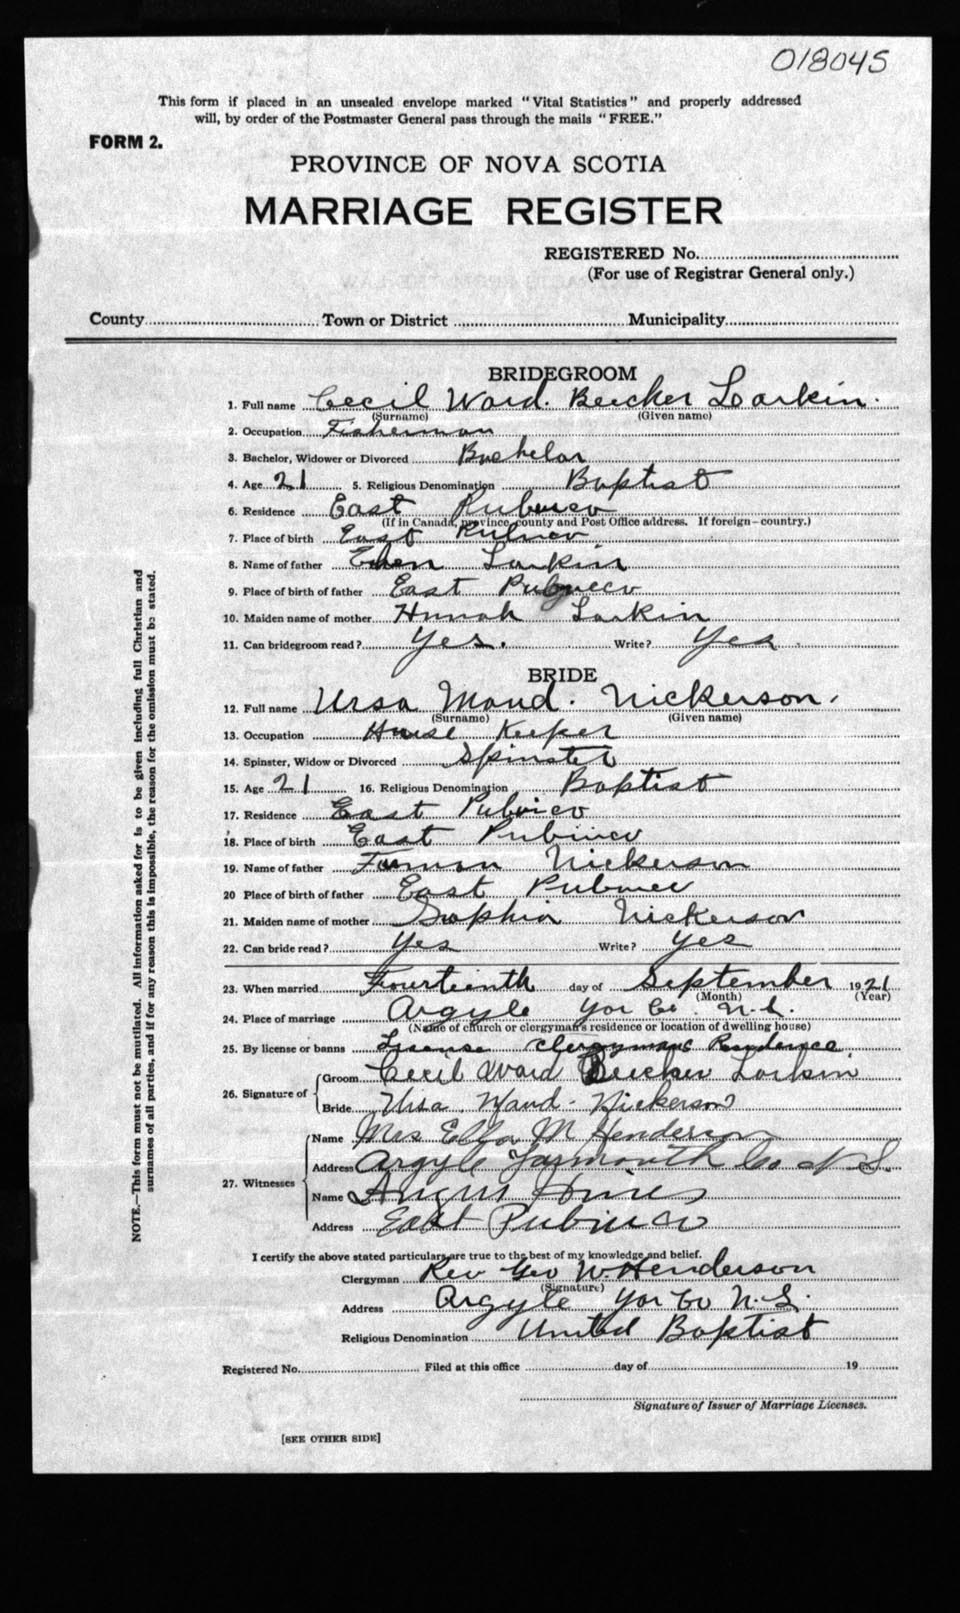 018045
This form if placed in an unsealed envelope marked "Vital Statistics" and properly addressed
will, by order of the Postmaster General pass through the mails "FREE."
FORM 2.
PROVINCE OF NOVA SCOTIA
MARRIAGE REGISTER
REGISTERED No.
(For use of Registrar General only.)
County Town or District Municipality
BRIDEGROOM
1. Full name Cecil Ward. Beecker Larkin.
(Surname) (Given name)
2. Occupation Fisherman
3. Bachelor, Widower or Divorced Bachelor
4. Age 21 5. Religious Denomination Baptist
6. Residence East Pubnico
(If in Canada, province, county and Post Office address. If foreign—country.)
7. Place of birth East Pubnico
8. Name of father Larkin
9. Place of birth of father East Pubnico
10. Maiden name of mother Hannah Larkin
11. Can bridegroom read? Yes. Write? Yes.
BRIDE
12. Full name Ursa Maud. Nickerson.
(Surname) (Given name)
13. Occupation House Keeper
14. Spinster, Widow or Divorced Spinster
15. Age 21 16. Religious Denomination Baptist
17. Residence East Pubnico
18. Place of birth East Pubnico
19. Name of father Nickerson
20 Place of birth of father East Pubnico
21. Maiden name of mother Sophia Nickerson
22. Can bride read? Yes Write? Yes
23. When married Fourteenth day of September 1921
(Month) (Year)
24. Place of marriage Argyle Yar Co. N.S.
(Name of church or clergyman's residence or location of dwelling house)
25. By license or banns License Clergymans Residence
26. Signature of Groom Cecil Ward Beecker Larkin
Bride Ursa Maud. Nickerson
27. Witnesses Name Mrs Ella M Henderson
Address Argyle Yarmouth Co N.S.
Name Angus
Address East Pubnico
I certify the above stated particulars are true to the best of my knowledge and belief.
Clergyman Rev Geo W. Henderson
(Signature)
Address Argyle Yar Co N.S.
Religious Denomination United Baptist
Registered No. Filed at this office day of 19
Signature of Issuer of Marriage Licenses.
[SEE OTHER SIDE]
NOTE.—This form must not be mutilated. All information asked for is to be given including full Christian and
surnames of all parties, and if for any reason this is impossible, the reason for the omission must be stated.